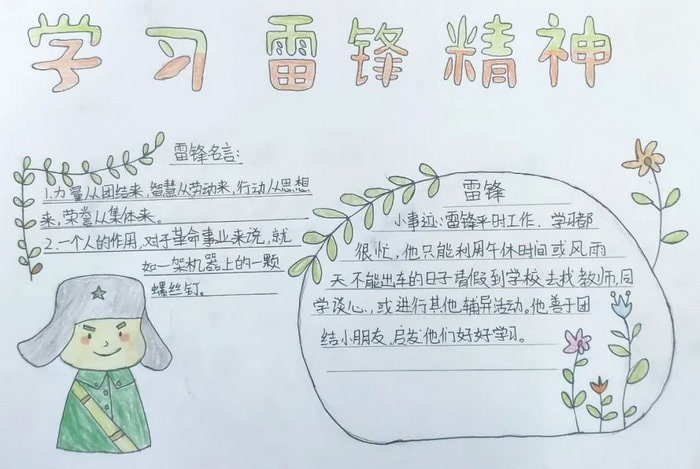 学习雷锋精神
雷锋名言:
1.力量从团结来,智慧从劳动来,行动从思想
来,荣誉从集体来。
2.一个人的作用,对于革命事业来说,就
如一架机器上的一颗
螺丝钉。
雷锋
小事迹:雷锋平时工作、学习都
很忙,他只能利用午休时间或风雨
天不能出车的日子请假到学校去找教师,同
学谈心,或进行其他辅导活动。他善于团
结小朋友,启发他们好好学习。